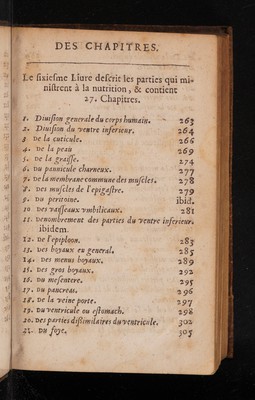 DES CHAPITRES.
Le sixiesme Liure descrit les parties qui mi-
nistrent à la nutrition, & contient
27. Chapitres.
1. Diuision generale du corps humain. 263
2. Diuision du ventre inferieur. 264
3 De la cuticule. 266
4. De la peau 269
5. De la graisse. 274
6. Du pannicule charneux. 277
7. De la membrane commune des muscles. 278
8. Des muscles de l'epigastre. 279
9. Du peritoine. ibid.
10 Des vaisseaux vmbilicaux. 281
11. Denombrement des parties du ventre inferieur.
ibidem.
12. De l'epiploon. 283
13. Des boyaux en general. 285
14. Des menus boyaux. 289
15. Des gros boyaux. 292
16. Du mesentere. 295
17. Du pancreas. 296
18. De la veine porte. 297
19. Du ventricule ou estomach. 298
20. Des parties dissimilaires du ventricule. 302
21. Du foye. 305